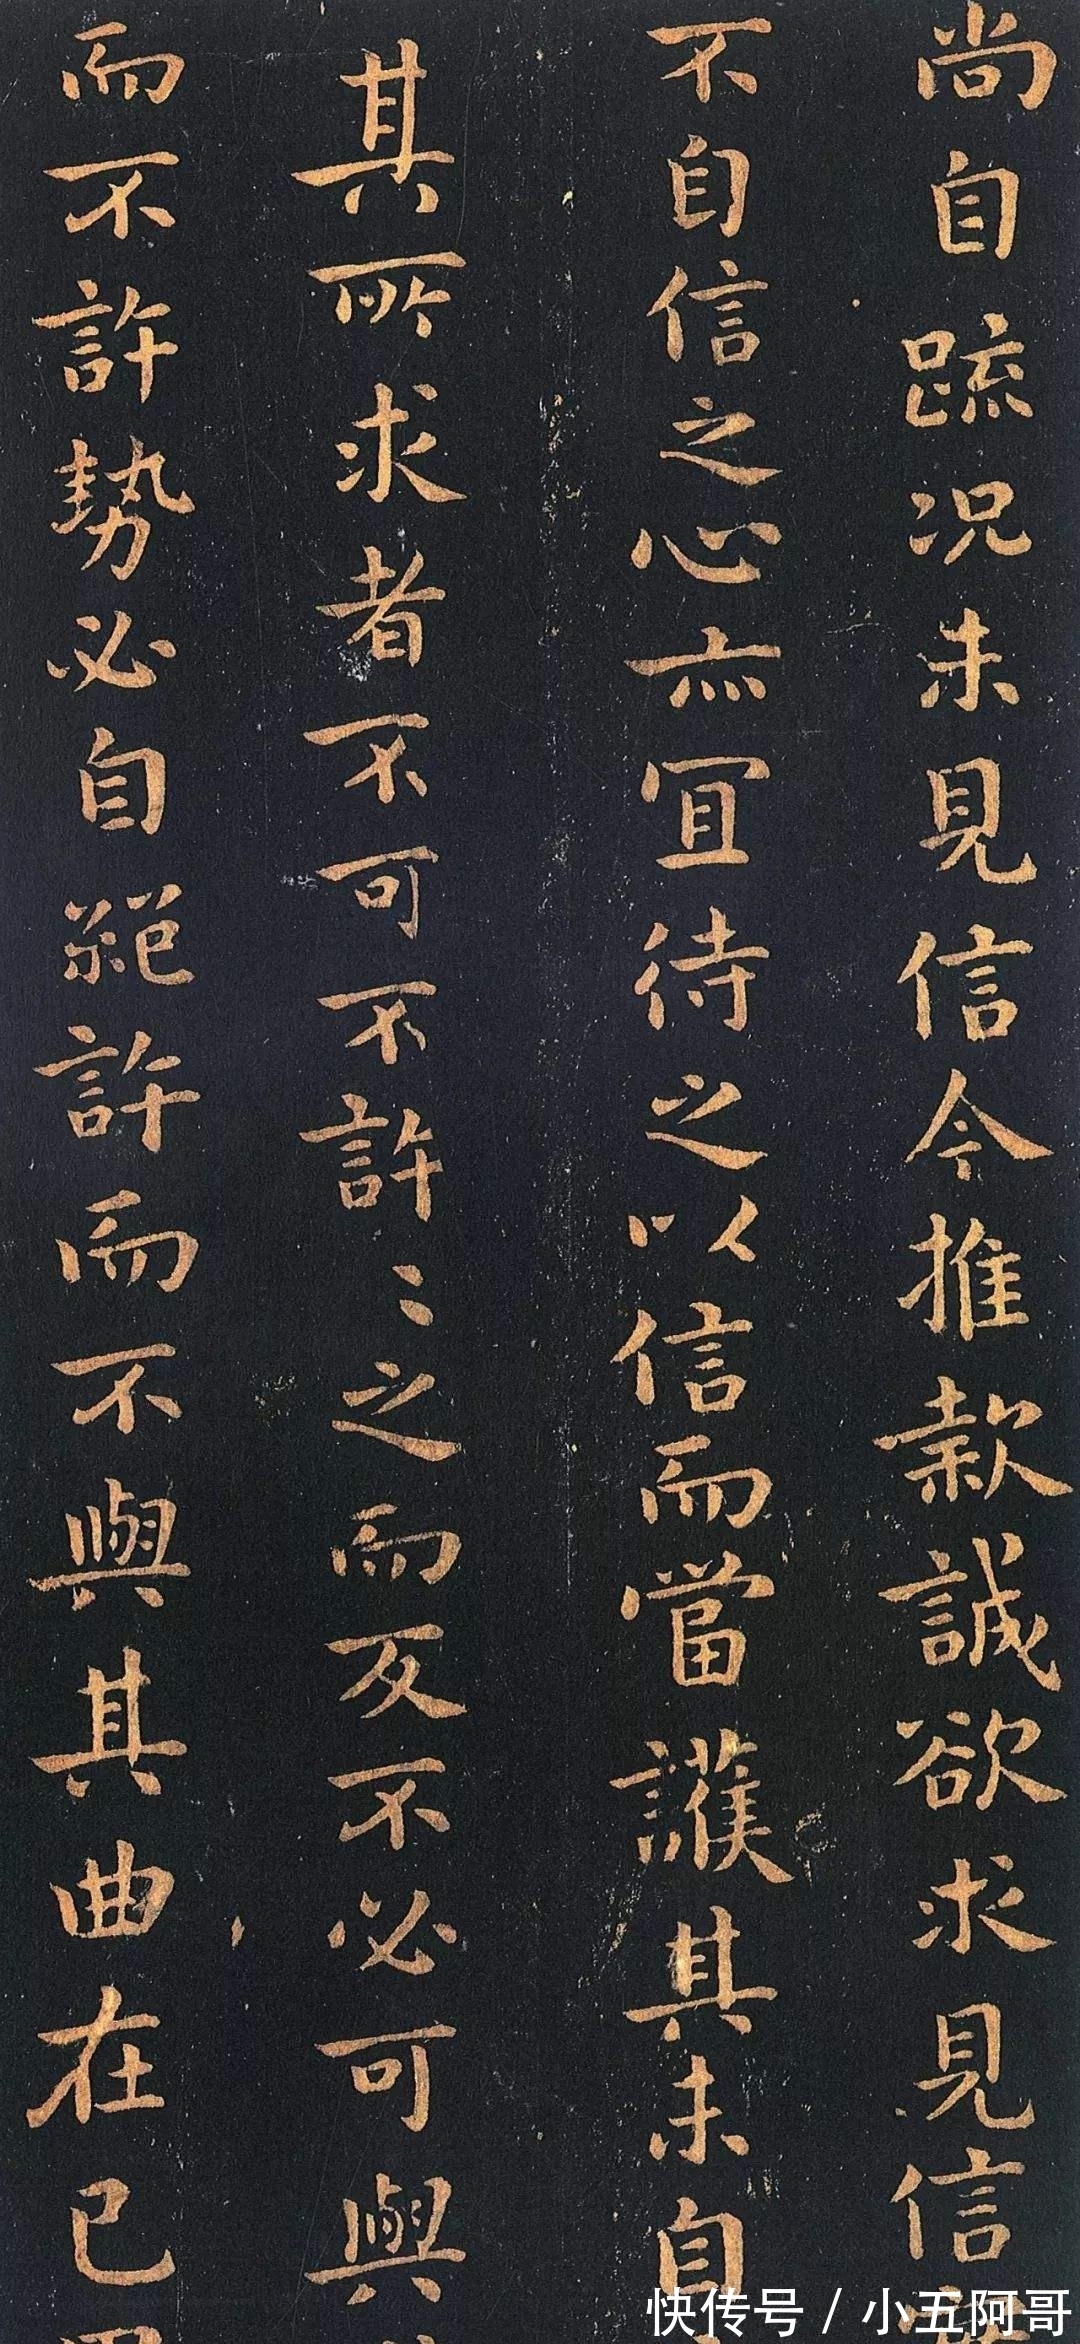 尚自疏况未見信今推款誠欲求見信
不自信之心亦宜待之以信而當護其未自
其所求者不可不許許之而反不必可與
而不許勢必自絕許而不與其曲在己
快传号 / 小五阿哥